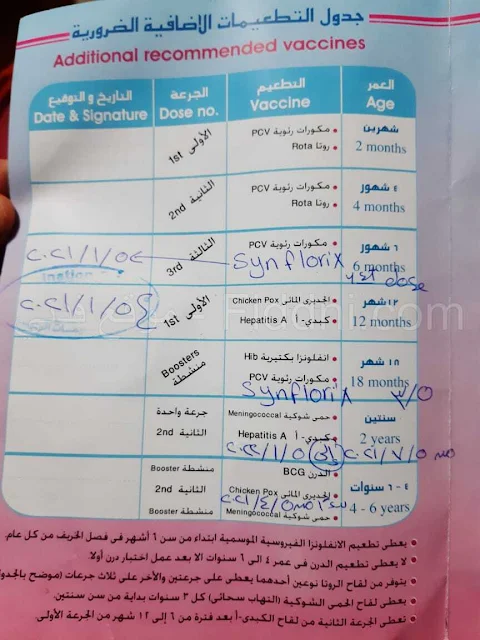 جدول التطعيمات الإضافية الضرورية
Additional recommended vaccines
العمر
Age
التطعيم
Vaccine
الجرعة
Dose no.
التاريخ و التوقيع
Date & Signature
شهرين
2 months
مكورات رئوية PCV
روتا Rota
الأولى
1st
٤ شهور
4 months
مكورات رئوية PCV
روتا Rota
الثانية
2nd
٦ شهور
6 months
مكورات رئوية PCV
الثالثة
3rd
Synflorix
1st dose
٢٠٢١/١/٥
١٢ شهر
12 months
الجديرى المائى Chicken Pox
كبدي- أ Hepatitis A
الأولى
1st
٢٠٢١/١/٥
١٨ شهر
18 months
انفلونزا بكتيرية Hib
مكورات رئوية PCV
Boosters
منشطة
Synflorix
٣/٥
سنتين
2 years
حمى شوكية Meningococcal
جرعة واحدة
كبدي- أ Hepatitis A
الثانية 2nd
من ٢٠٢١/٧/٥ إلى ٢٠٢٢/١/٥
٤ - ٦ سنوات
4 - 6 years
الدرن BCG
منشطة Booster
الجديرى المائى Chicken Pox
الثانية 2nd
٢٠٢١/٤/٥
حمى شوكية Meningococcal
منشطة Booster
يعطى تطعيم الانفلونزا الفيروسية الموسمية ابتداء من سن ٦ أشهر فى فصل الخريف من كل عام.
لا يعطى تطعيم الدرن فى عمر ٤ الى ٦ سنوات الا بعد عمل اختبار درن أولا.
يتوفر من لقاح الروتا نوعين أحدهما يعطى على جرعتين والآخر على ثلاث جرعات (موضح بالجدو
يعطى لقاح الحمى الشوكية (التهاب سحائى) كل ٣ سنوات بداية من سن سنتين.
تعطى الجرعة الثانية من لقاح الكبدى-أ بعد فترة من ٦ إلى ١٢ شهر من الجرعة الأولى.